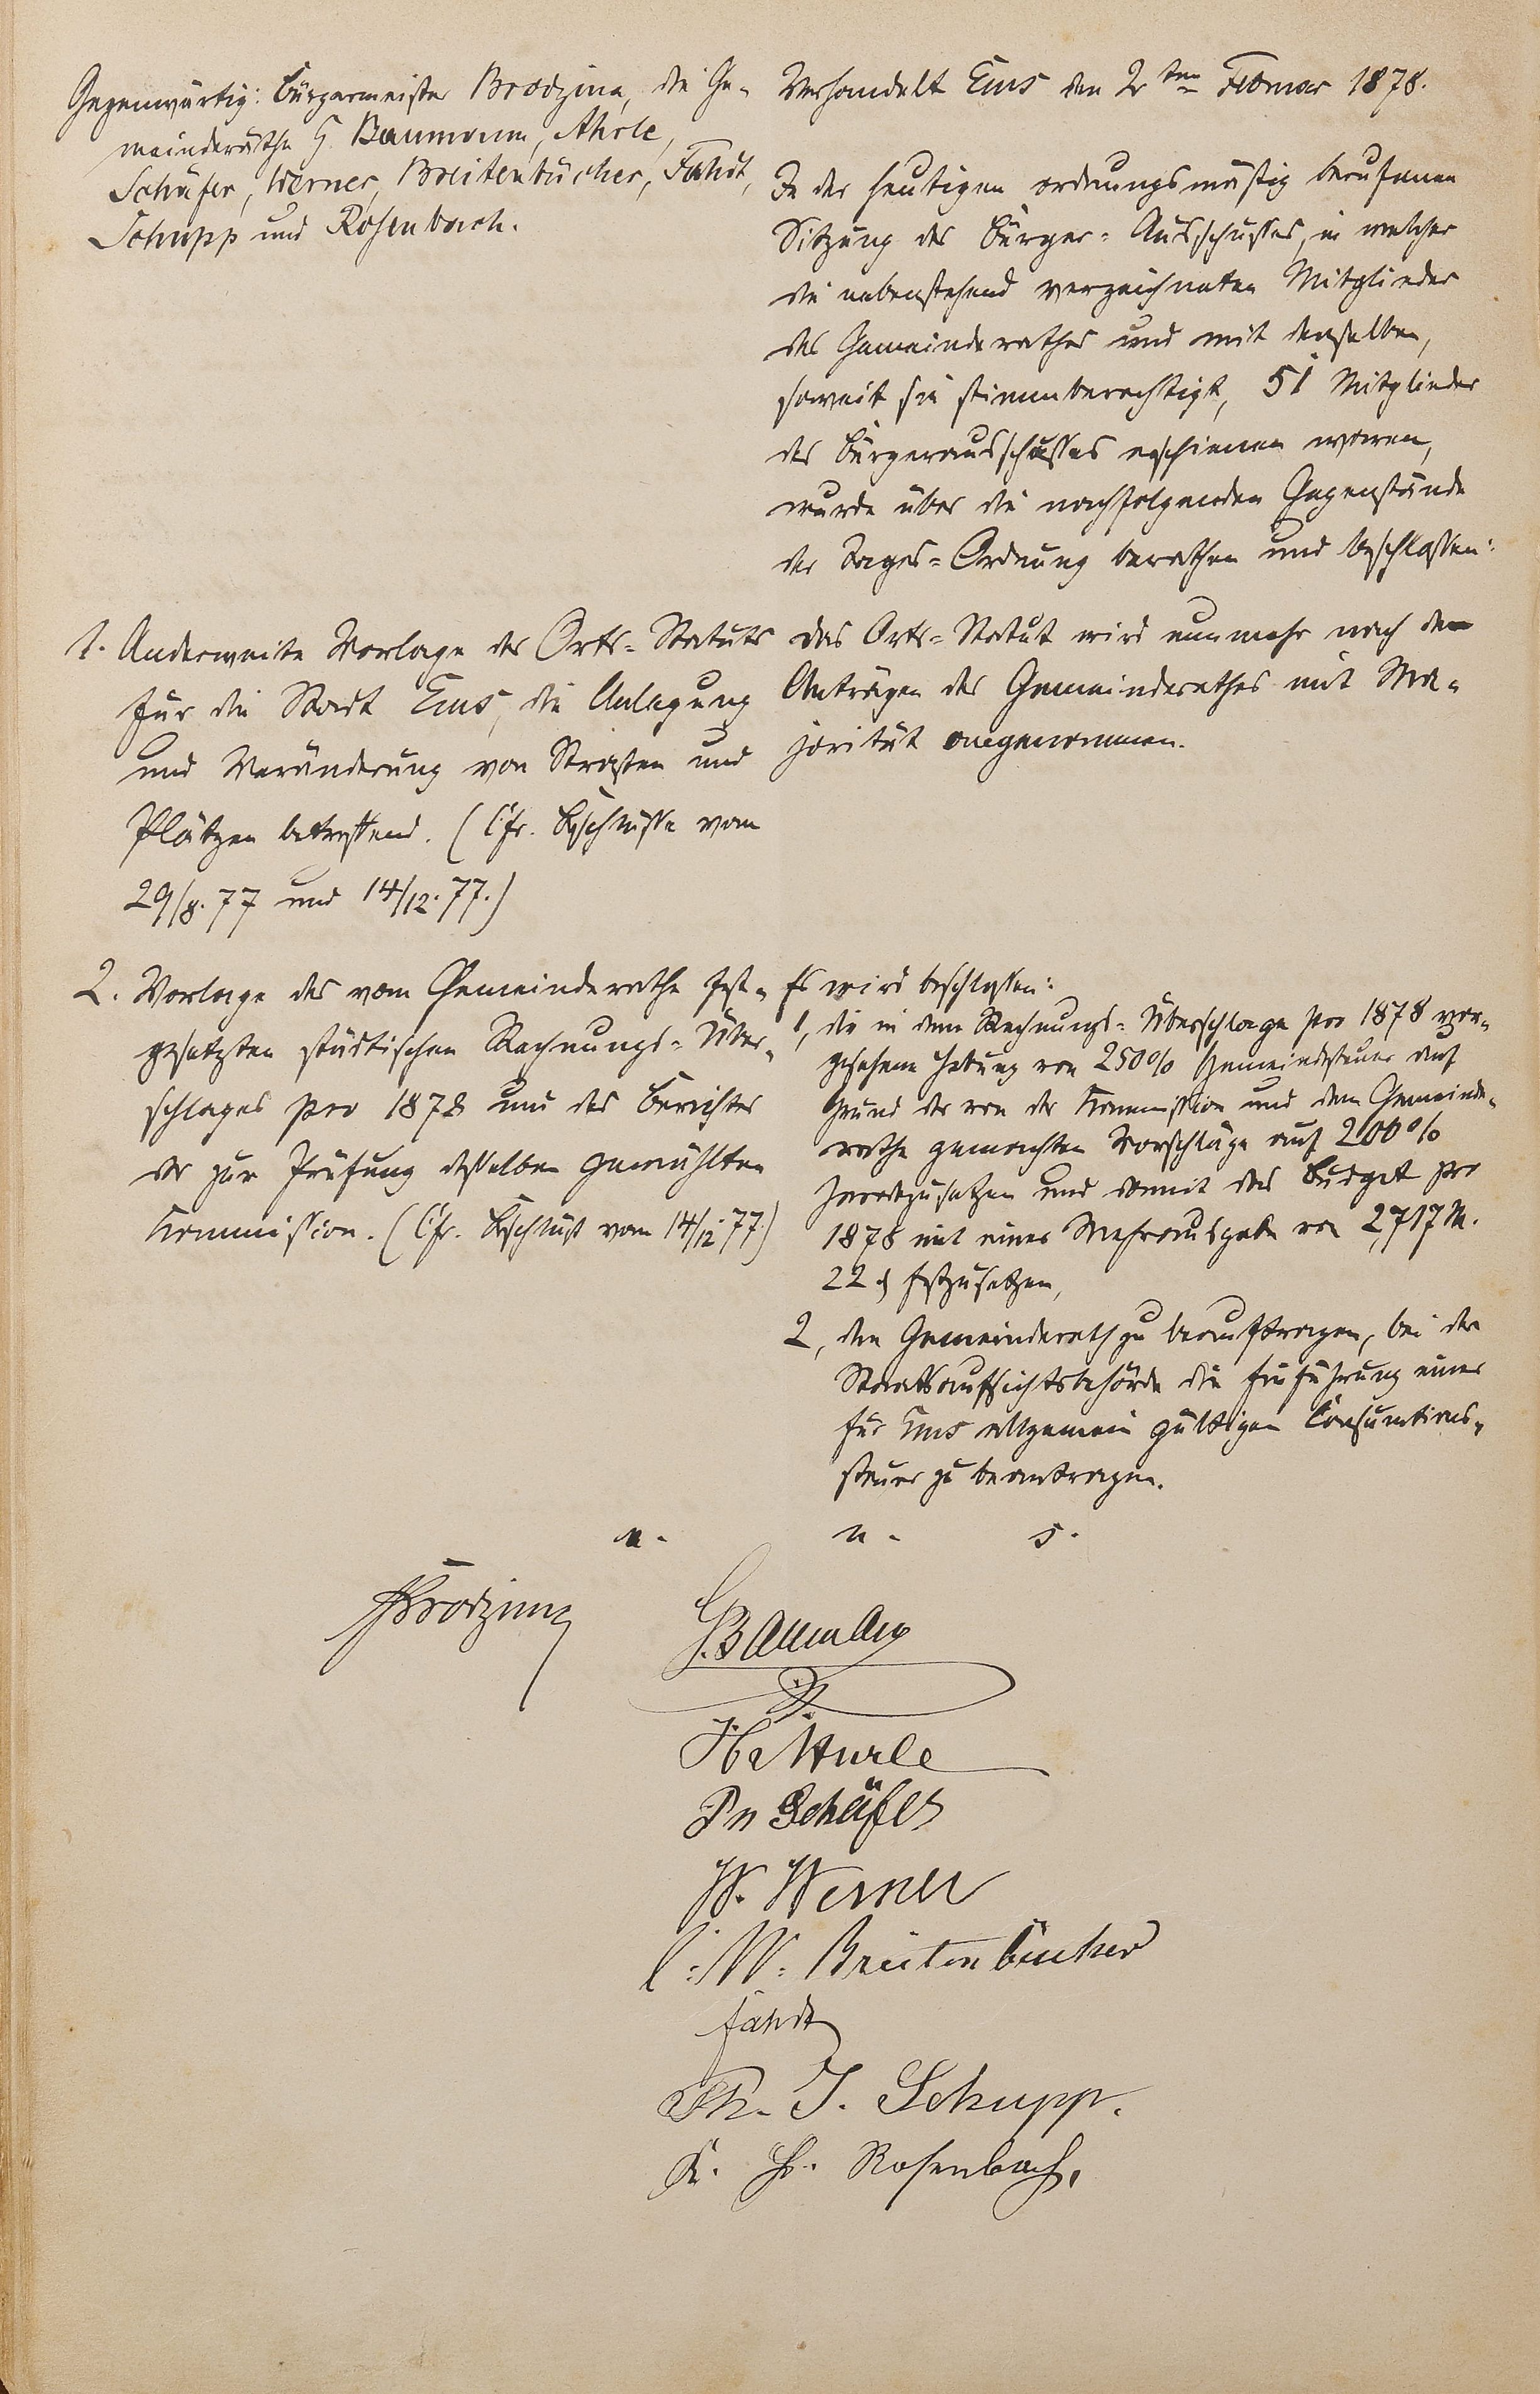 Gegenwärtig: Bürgermeister Brodzina, die Ge-
meinderäthe G. Baumann, Ahrle,
Schäfer, Werner, Breitenbücher, Fahdt,
Schupp und Rosenbach.
Verhandelt Ems den 2ten Februar 1878.
In der heutigen ordnungsmäßig berufenen
Sitzung des Bürger-Ausschusses, in welcher
die nebenstehend verzeichneten Mitglieder
des Gemeinderathes und mit denselben,
soweit sie stimmberechtigt, 51 Mitglieder
des Bürgerausschusses erschienen waren,
wurde über die nachfolgenden Gegenstände
der Tages-Ordnung berathen und beschlossen:
1. Anderweite Vorlage des Orts-Statuts
für die Stadt Ems, die Anlegung
und Veränderung von Straßen und
Plätzen betreffend. (Cfr. Beschlüsse vom
29/8.77 und 14/12.77.)
Das Orts-Statut wird nunmehr nach den
Anträgen des Gemeinderathes mit Ma-
jorität angenommen.
2. Vorlage des vom Gemeinderathe fest-
gesetzten städtischen Rechnungs-Über-
schlages pro 1878 und des Berichtes
der zur Prüfung desselben gewählten
Kommission. (Cfr. Beschluß vom 14/12.77.)
Es wird beschlossen:
1, die in dem Rechnungs-Überschlage pro 1878 vor-
gesehene Hebung von 250% Gemeindesteuer auf
Grund der von der Kommission und dem Gemeinde-
rathe gemachten Vorschläge auf 200%
herabzusetzen und somit das Budget pro
1878 mit einer Mehrausgabe von 2,717 M.
22 ₰ festzusetzen,
2, den Gemeinderath zu beauftragen, bei der
Staatsaufsichtsbehörde die Einführung einer
für Ems allgemein gültigen Consumtions-
steuer zu beantragen.
u. u. s.
Brodzina
G. Baumann
Ahrle
Schäfer
W. Werner
C. W. Breitenbücher
Fahdt
Ph. J. Schupp.
K. H. Rosenbach.